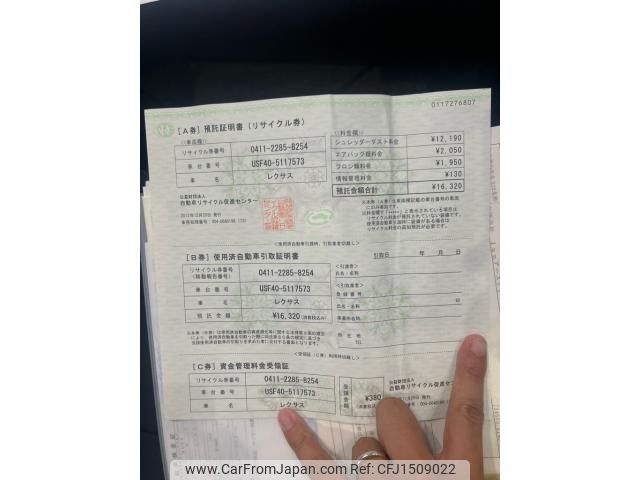 0117276807
[A券] 預託証明書 (リサイクル券)
リサイクル券番号 0411-2285-8254
車台番号 USF40-5117573
車名 レクサス
《料金欄》
シュレッダーダスト料金 ¥12,190
エアバッグ類料金 ¥2,050
フロン類料金 ¥1,950
情報管理料金 ¥130
預託金額合計 ¥16,320
公益財団法人
自動車リサイクル促進センター
[B券] 使用済自動車引取証明書
引取日 年 月 日
リサイクル券番号 0411-2285-8254
(移動報告番号)
車台番号 USF40-5117573
車名 レクサス
預託金額 ¥16,320(消費税込み)
<引渡者>
氏名・名称
<引取業者>
登録番号
氏名・名称
事業所名
所在地
TEL
[C券] 資金管理料金受領証
リサイクル券番号 0411-2285-8254
車台番号 USF40-5117573
車名 レクサス
受領金額 ¥380
公益財団法人
自動車リサイクル促進セン
www.CarFromJapan.com - Photo: CFJ1509022